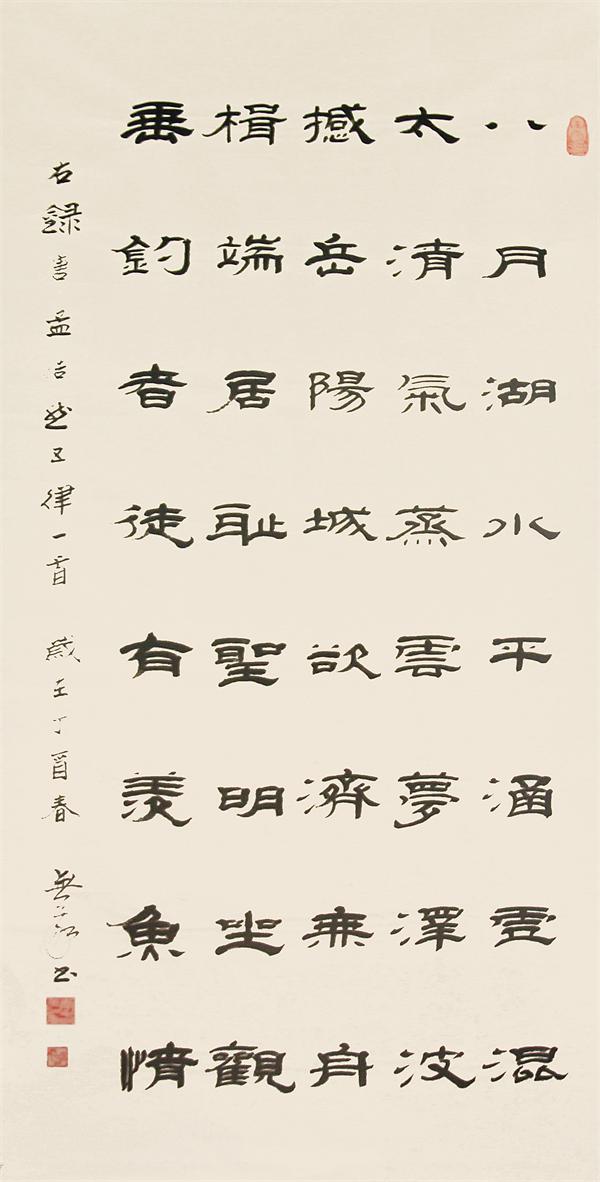 八月湖水平涵虛混
太清氣蒸雲夢澤波
撼岳陽城欲濟無舟
楫端居恥聖明坐觀
垂釣者徒有羨魚情
右錄書孟浩然五律一首 歲在丁酉春 書